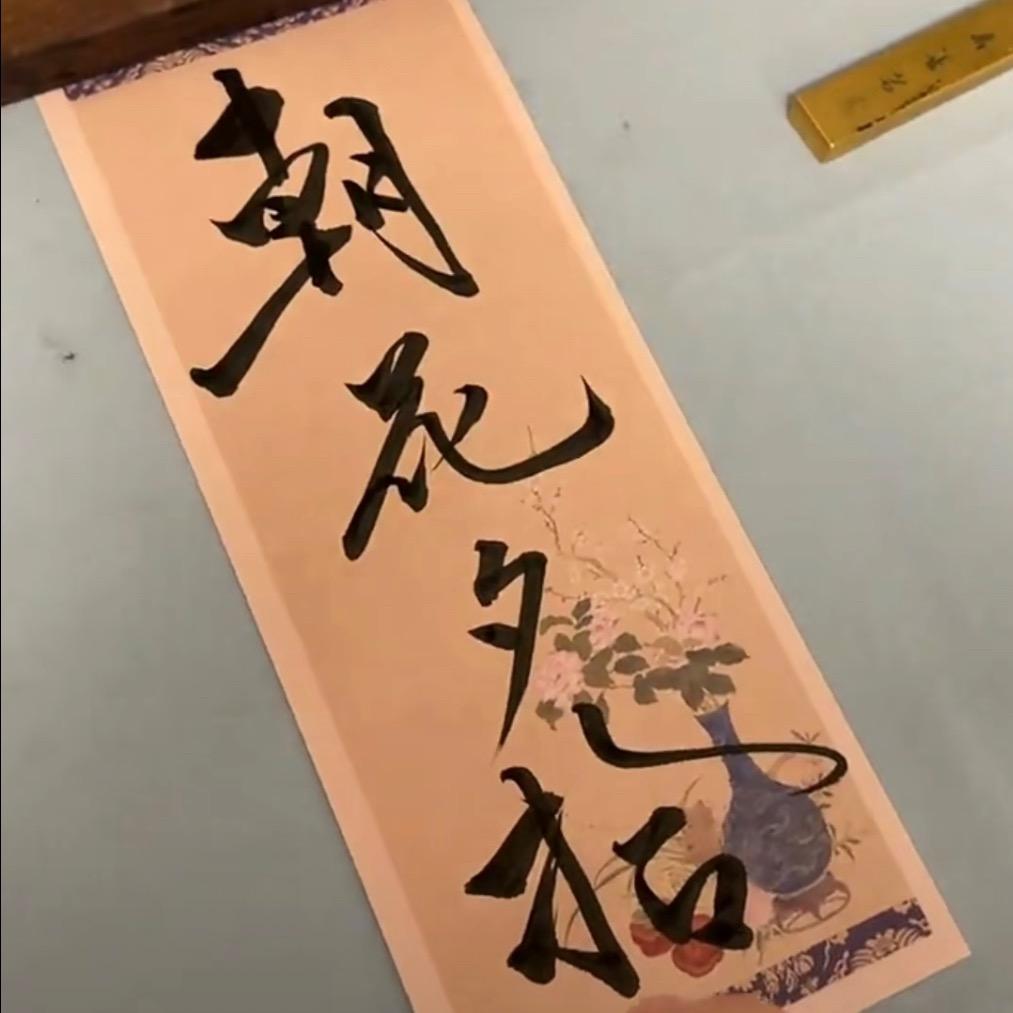 朝花夕拾